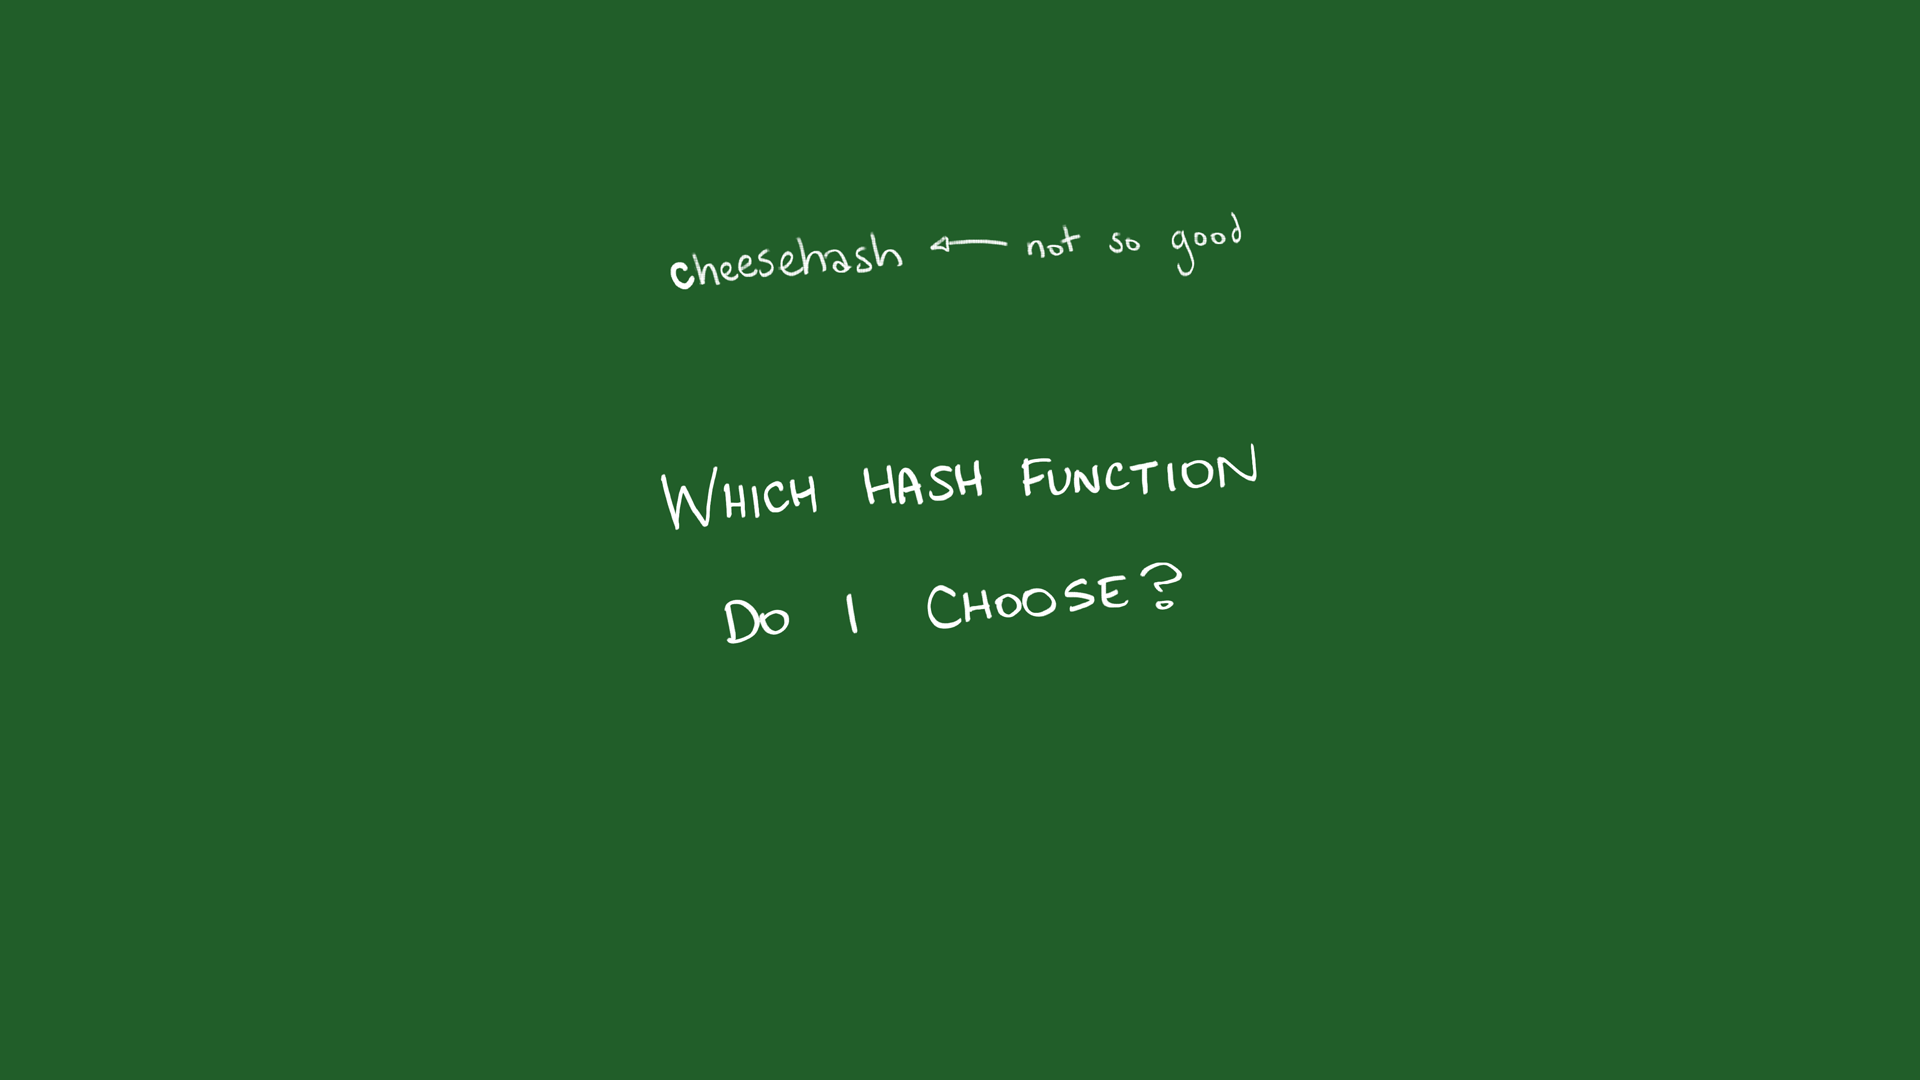 cheesehash ← not so good
WHICH HASH FUNCTION
DO I CHOOSE?